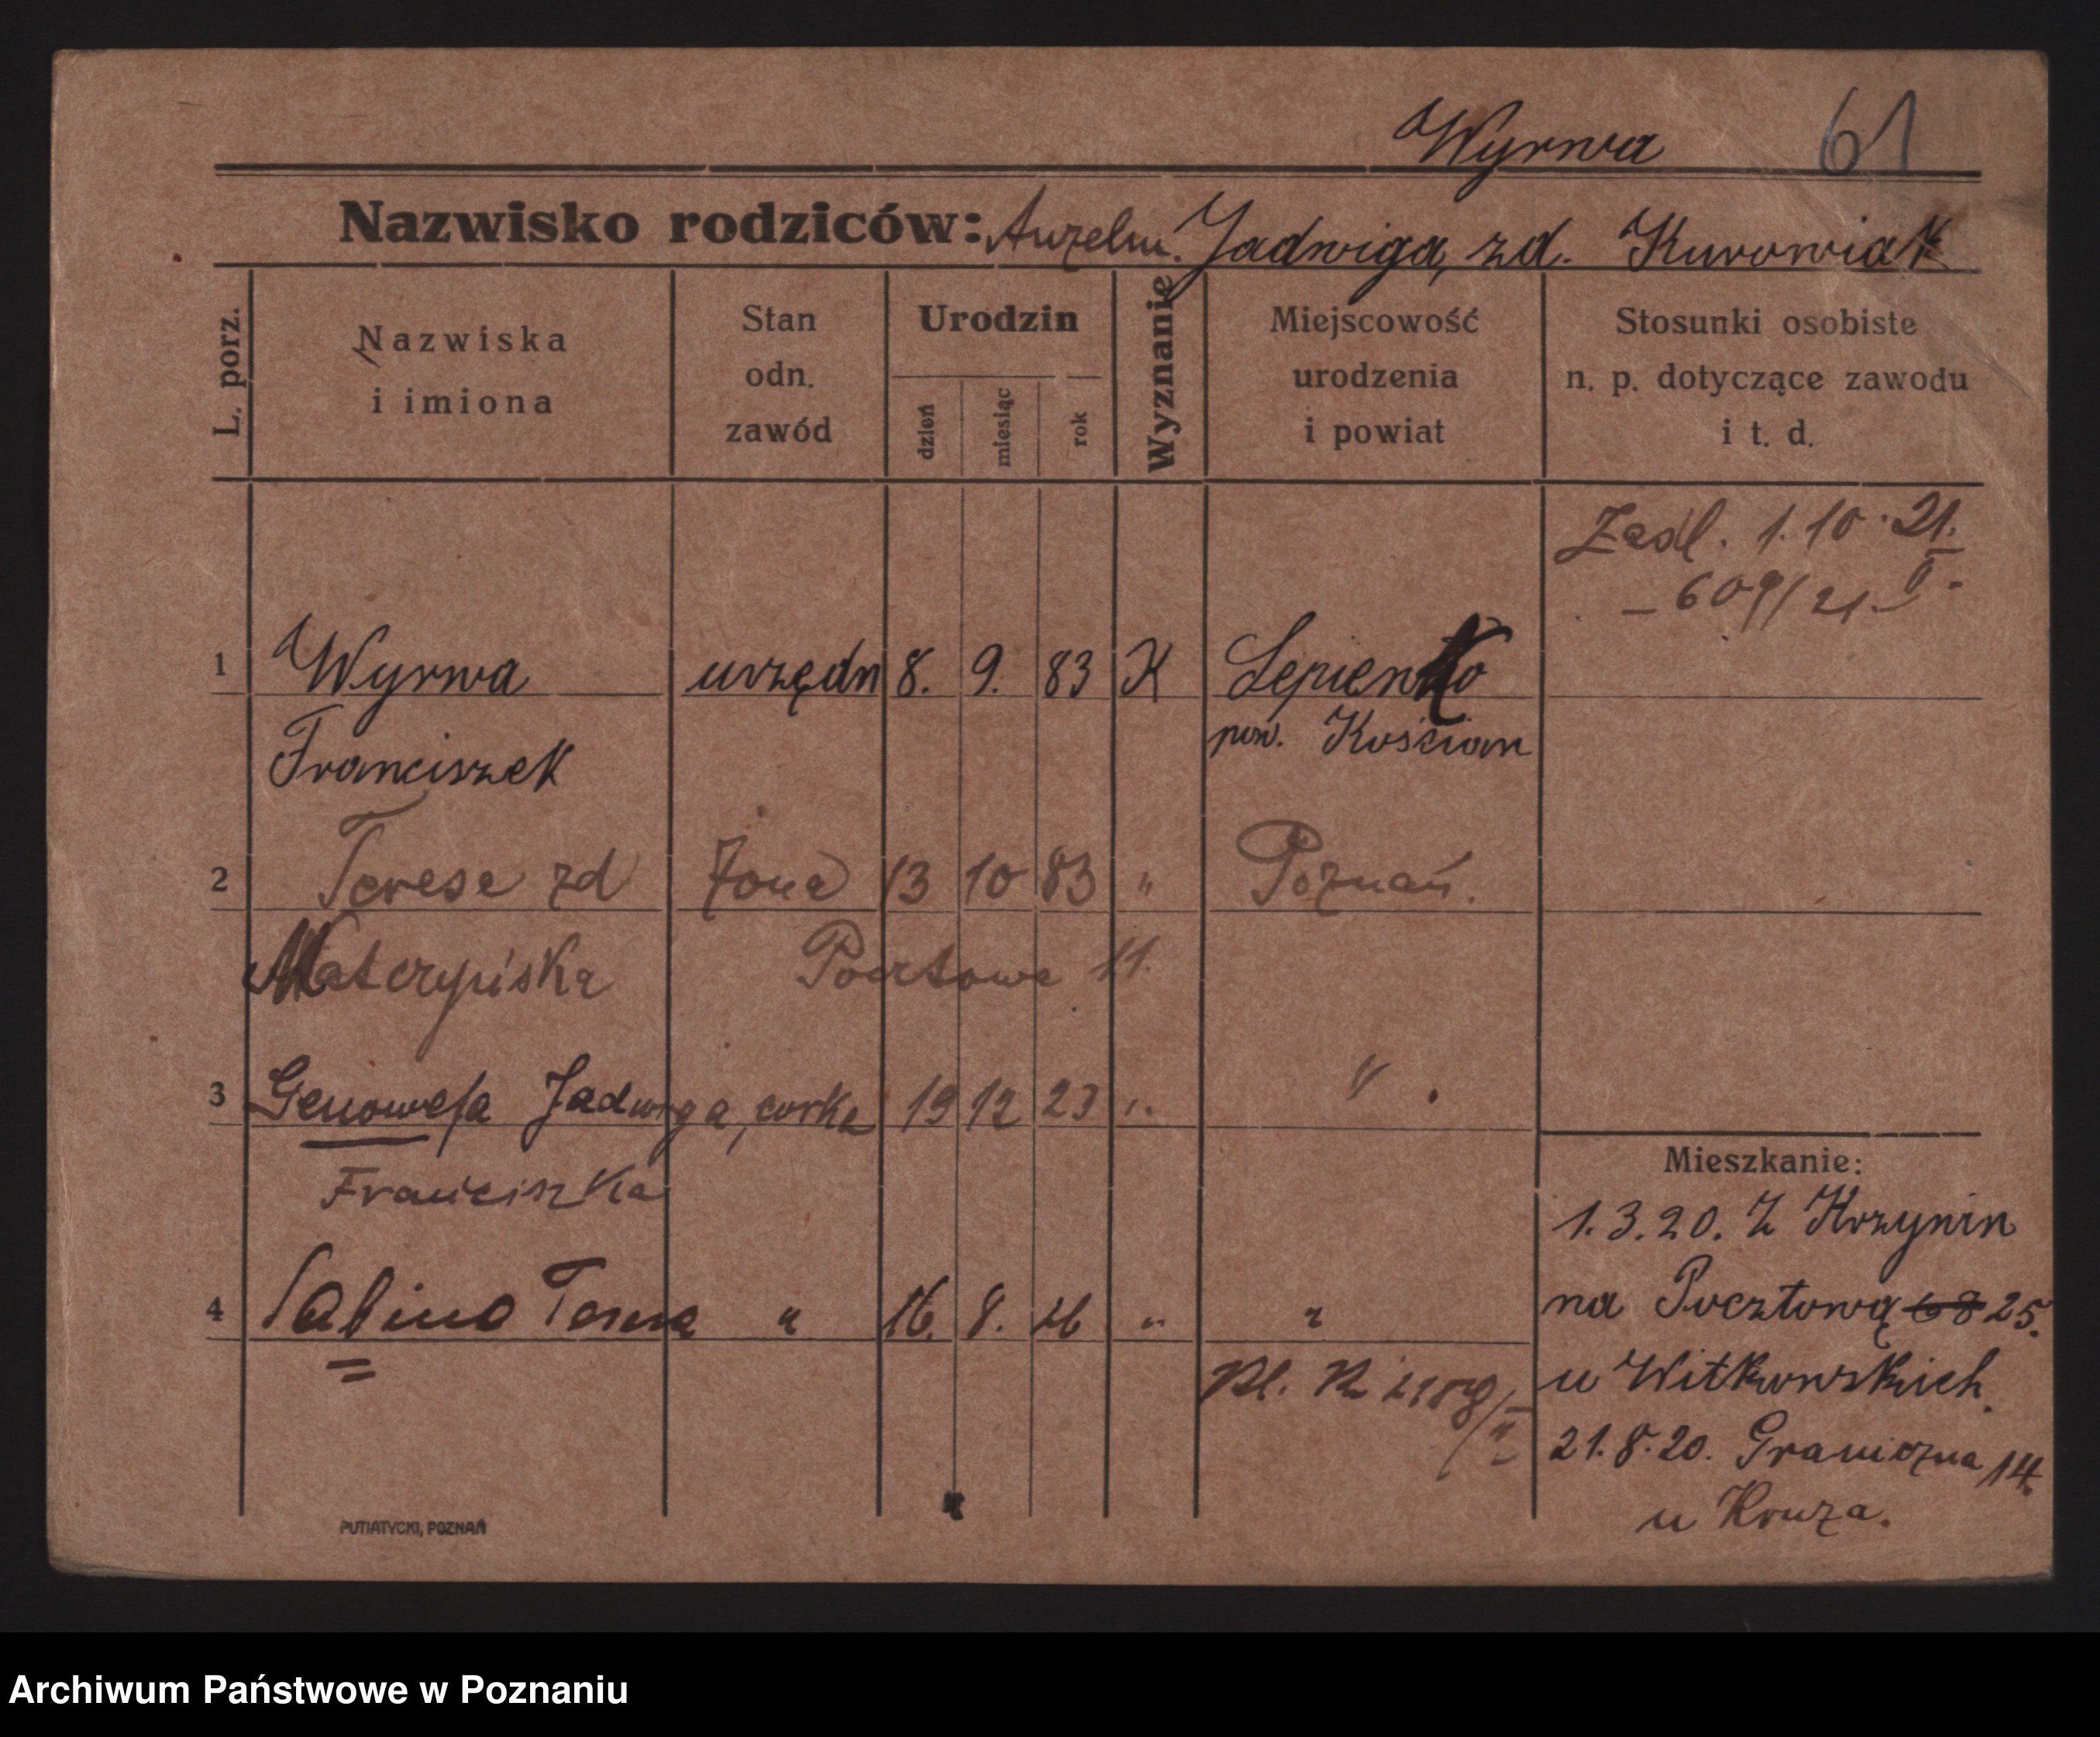 Wyrwa 61
Nazwisko rodziców: Anzelm. Jadwiga, zd. Kurowiak
L. porz. Nazwiska i imiona Stan odn. zawód Urodzin dzień miesiąc rok Wyznanie Miejscowość urodzenia i powiat Stosunki osobiste n. p. dotyczące zawodu i t. d.
1. 10. 21.
- 609/21. II.
1 Wyrwa urzędn 8. 9. 83 K Sepienko
Franciszek pow. Kościan
2 Teresa zd żona 13 10 83 " Poznań.
Matczyńska Pocztowa 11.
3 Genowefa Jadwiga, córka 19 12 23 " "
Franciszka
4 Sabina Teresa " 16. 8. 26 " "
Mieszkanie:
1. 3. 20. Z Krzywin
na Pocztową 68 25.
u Witkowskich.
21. 8. 20. Graniczna 14.
u Kruza.
PUTIATYCKI, POZNAŃ
Archiwum Państwowe w Poznaniu